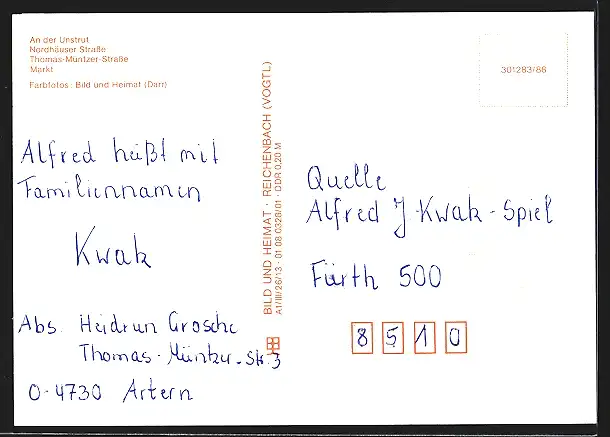 An der Unstrut
Nordhäuser Straße
Thomas-Müntzer-Straße
Markt
Farbfotos: Bild und Heimat (Darr)
301283/86
BILD UND HEIMAT · REICHENBACH (VOGTL)
A1/III/26/13 · 01 08 0328/01 · DDR 0,20 M
Alfred heißt mit
Familiennamen
Kwak
Abs. Heidrun Grosche
Thomas-Müntzer-Str. 3
O-4730 Artern
Quelle
Alfred J Kwak-Spiel
Fürth 500
8510